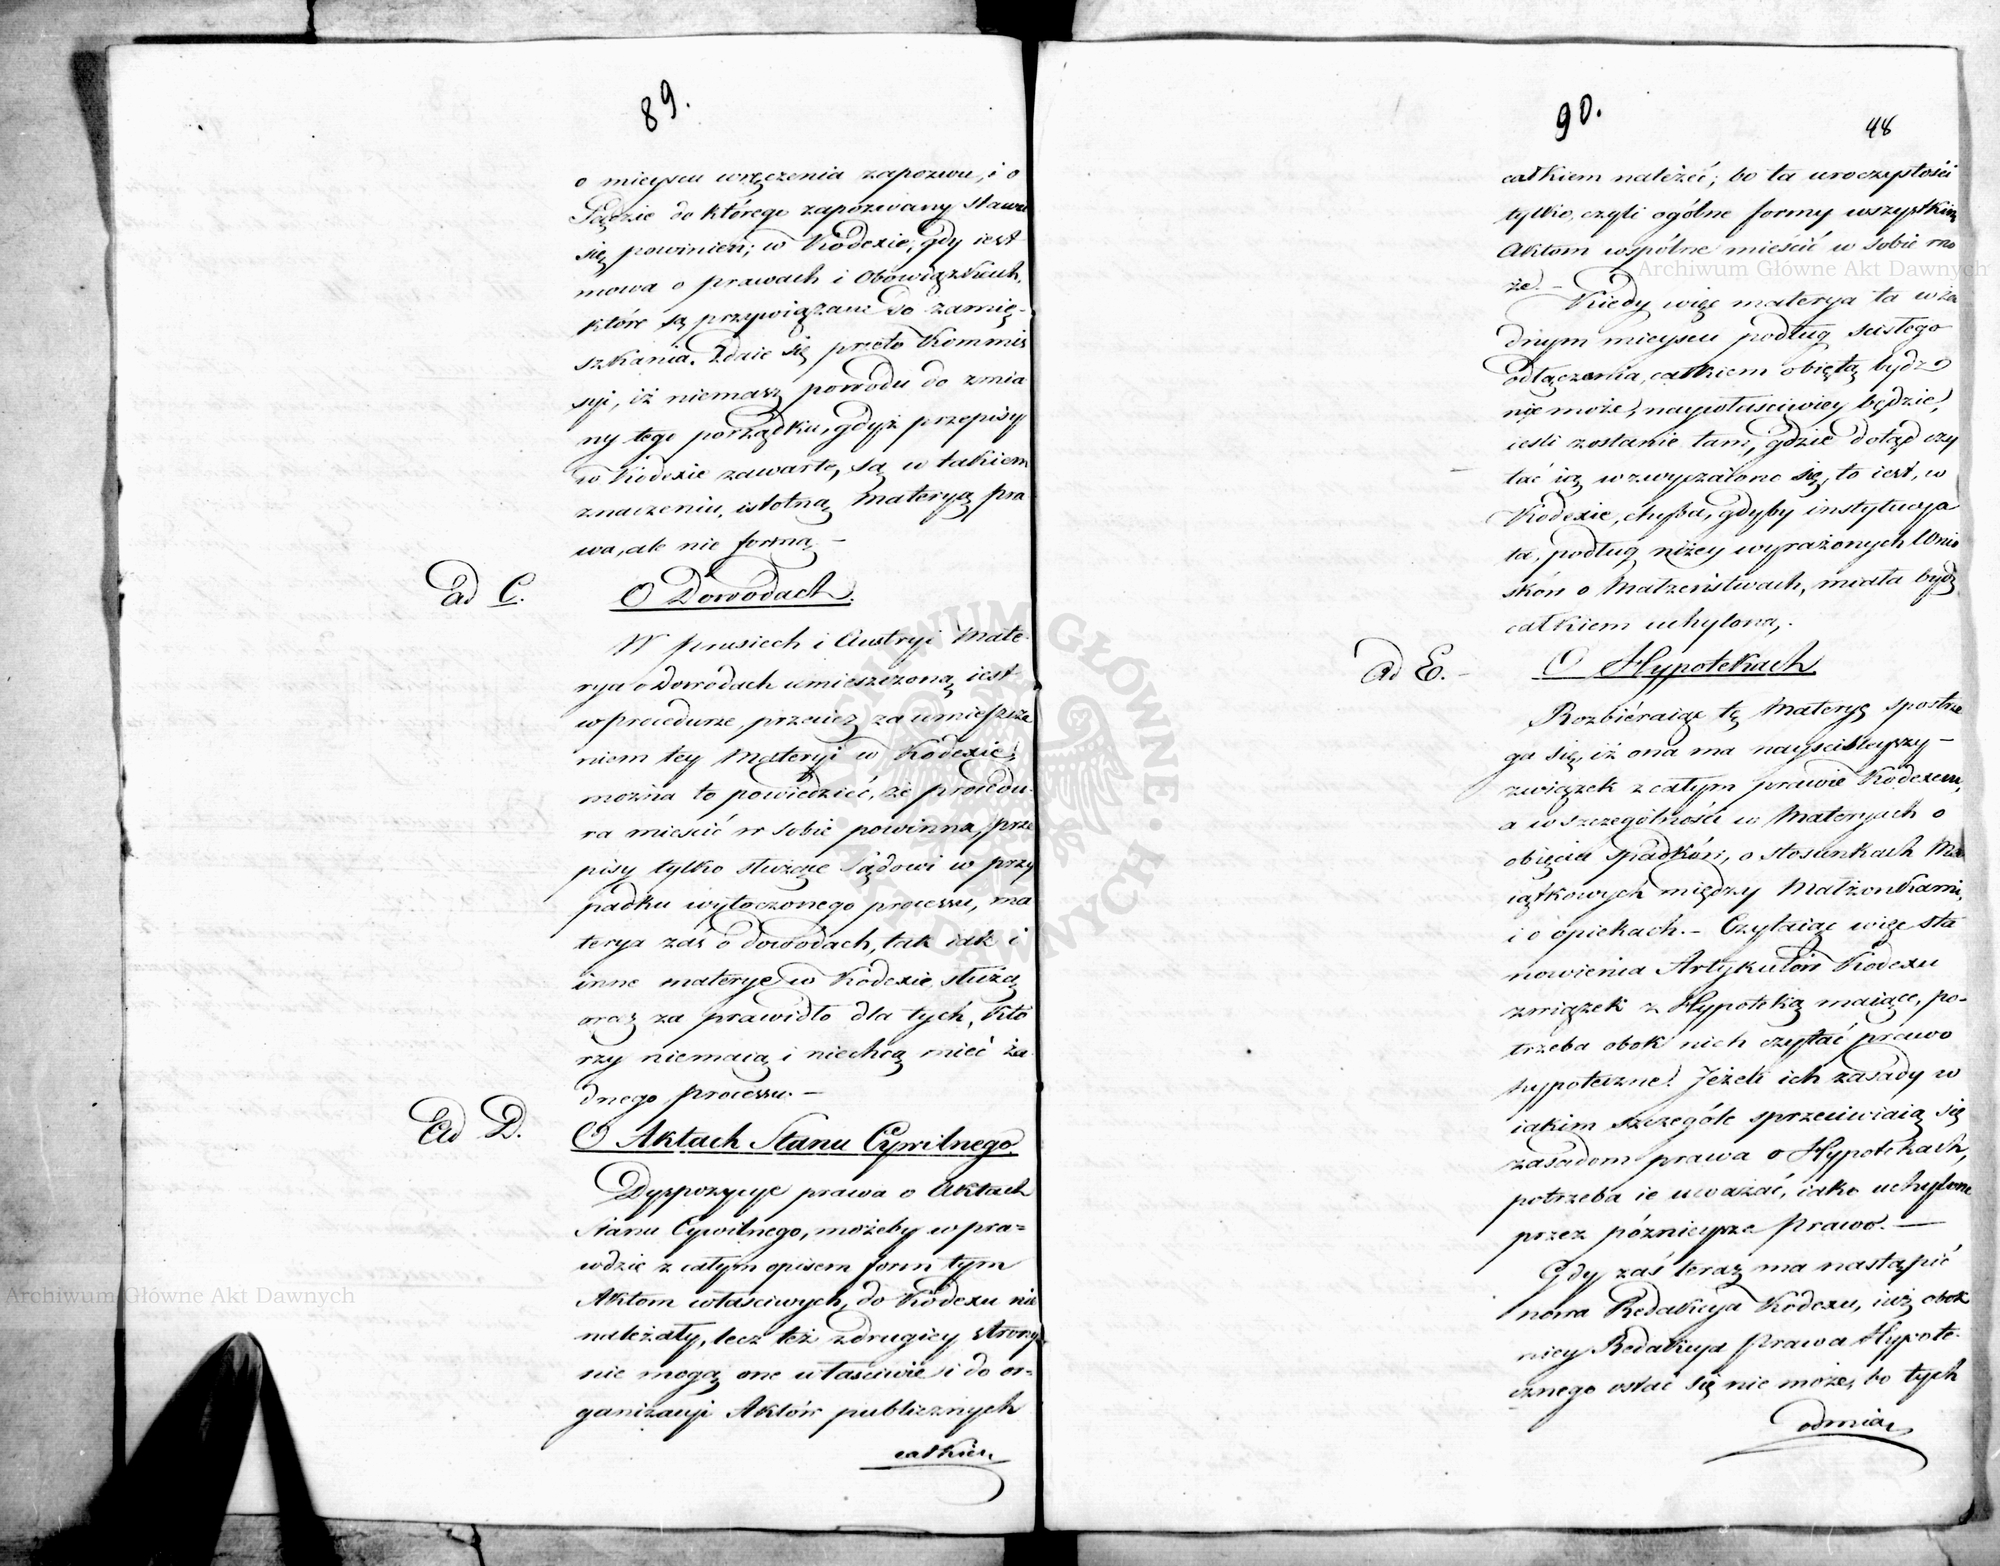 89.
o mieyscu wręczenia zapozwu, i o
Sądzie do którego zapozwany stawić
się powinien; w Kodexie, gdy iest
mowa o prawach i obowiązkach,
które są przywiązane do zamię-
szkania. Zdaie się przeto Kommis
syi, iż niemasz powodu do zmia
ny tego porządku, gdyż przepisy
w Kodexie zawarte, są w takiem
znaczeniu, istotną materyą pra
wa, ale nie formą. —
ad C. O Dowodach.
W prusiech i Austryi mate-
rya o Dowodach umieszczoną iest
w procedurze, przecież za umieszcze
niem tey Materyi w Kodexie,
można to powiedzieć, że procedu-
ra mieścić w sobie powinna, prze
pisy tylko służące Sądowi w przy
padku wytoczonego processu, ma
terya zaś o dowodach, tak iak i
inne materye w Kodexie, służą
oraz za prawidło dla tych, któ
rzy niemaią i niechcą mieć ża-
dnego processu. —
Ad D. O Aktach Stanu Cywilnego.
Dyspozycye prawa o Aktach
Stanu Cywilnego, możeby w pra=
wdzie z całym opisem form tym
Aktom właściwych, do Kodexu nie
należały, lecz też z drugiey strony
nie mogą one właściwie i do or=
ganizacyi Aktów publicznych
całkiem
90.
48
całkiem należeć; bo ta uroczystości
tylko, czyli ogólne formy wszystkim
Aktom wspólne mieścić w sobie mo
że. —
Kiedy więc materya ta w ża
dnym mieyscu podług scisłego
odłączenia, całkiem obiętą bydz
nie może, naywłaściwiey będzie,
ieśli zostanie tam, gdzie dotąd czy
tać ią wzwyczaiono się, to iest, w
Kodexie, chyba, gdyby instytucya
ta, podług niżey wyrażonych Wnio
sków o Małżeństwach, miała bydz
całkiem uchyloną.
ad E. — O Hypotekach
Rozbieraiąc tę Materyę spostrze
ga się, iż ona ma nayściśleyszy —
związek z całym prawie Kodexem,
a w szczególności w Materyach o
obięciu spadków, o stosunkach Ma
iątkowych między Małżonkami,
i o opiekach. — Czytaiąc więc sta
nowienia Artykułów Kodexu
związek z Hypoteką maiące, po-
trzeba obok nich czytać prawo
hypoteczne. Jeżeli ich zasady w
iakim szczególe sprzeciwiaią się
zasadom prawa o Hypotekach,
potrzeba ie uważać, iako uchylone
przez późnieysze prawo. —
Gdy zaś teraz ma nastąpić
nowa Redakcya Kodexu, iuż obok
niey Redakcya prawa Hypote-
cznego ostać się nie może, bo tych
odmian
Archiwum Główne Akt Dawnych
Archiwum Główne Akt Dawnych
ARCHIWUM GŁÓWNE · AKT DAWNYCH ·